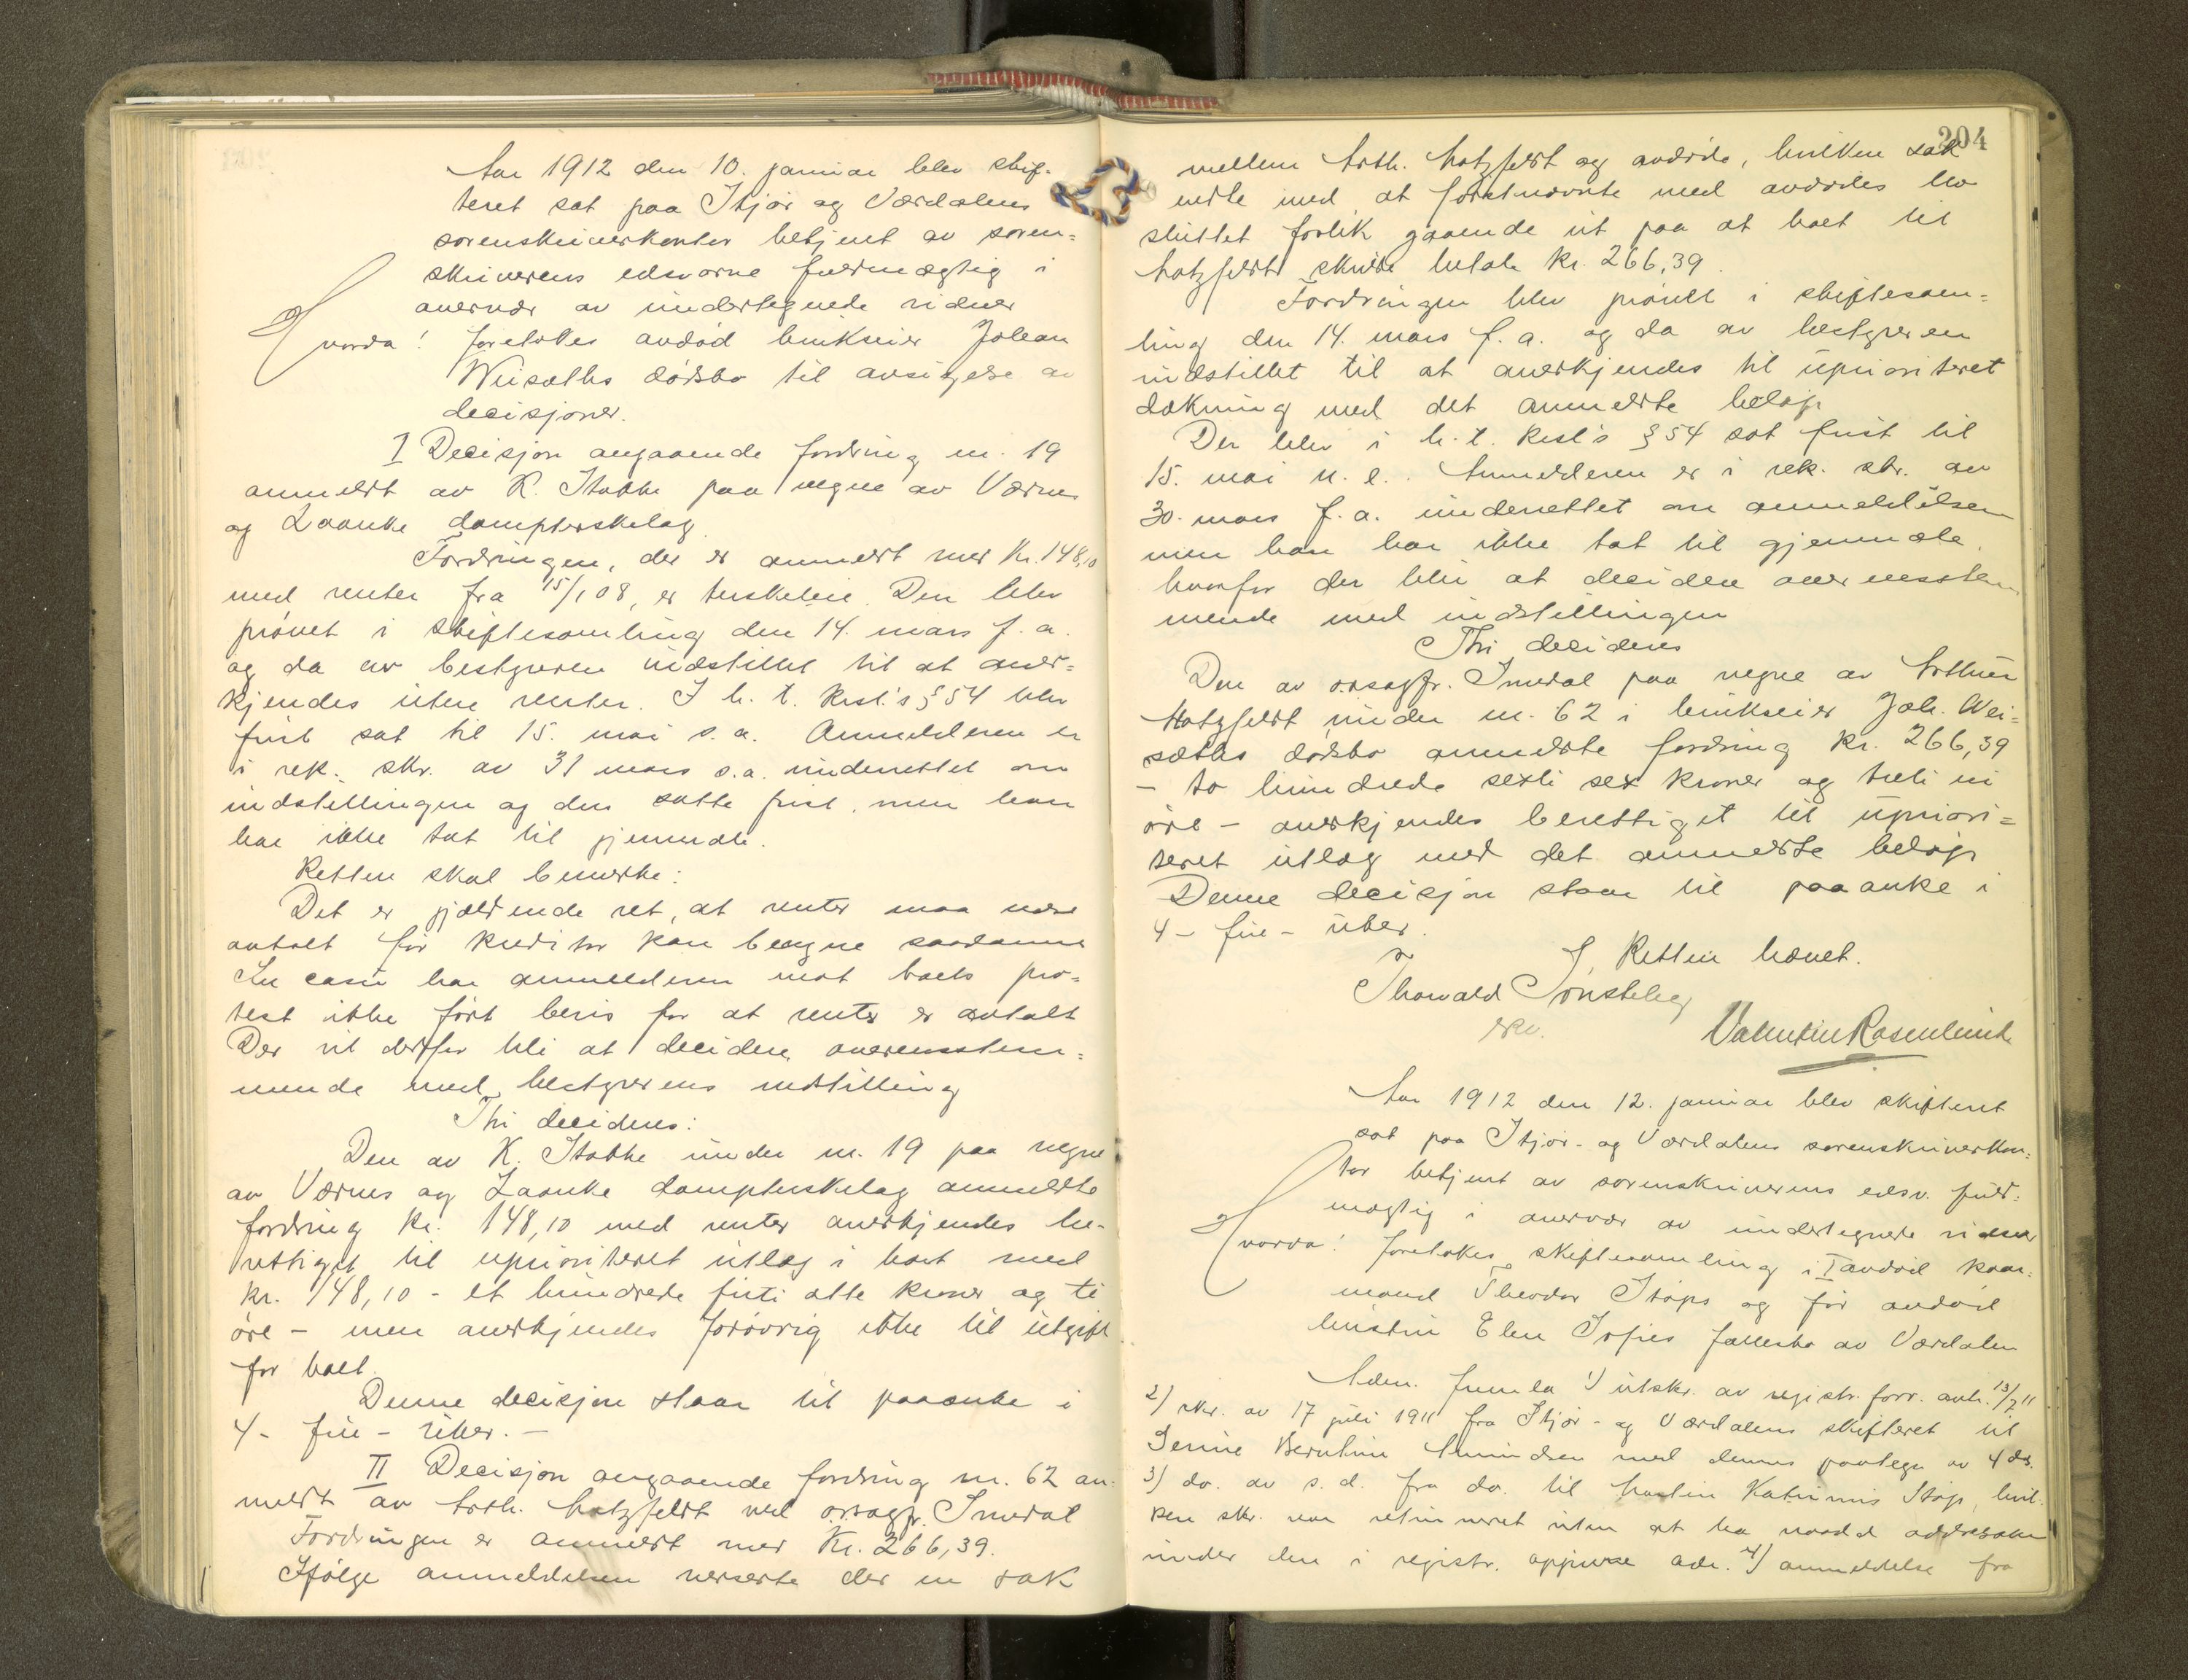 Aar 1912 den 10. januar blev skif-
teret sat paa Stjør og Værdalens
sorenskriverkontor betjent av soren-
skriverens edsvorne fuldmægtig i
overvær av undertegnede vidner
Hvorda! foretokes avdød brukseier Johan
Weisæths dødsbo til avsigelse av
decisjoner.
I Decisjon angaaende fordring nr. 19
anmeldt av K. Stokke paa vegne av Værnes
og Laanke dampterskelag
Fordringen, der er anmeldt med Kr. 148,10
med renter fra 15/1 08, er terskeleie. Den blev
prøvet i skiftesamling den 14. mars f. a.
og da av bestyreren indstillet til at aner-
kjendes uten renter. I h. t. Ksl.'s § 54 blev
frist sat til 15. mai s. a. Anmelderen er
i rek. skr. av 31 mars s. a. underrettet om
indstillingen og den satte frist, men han
har ikke tat til gjenmæle.
Retten skal bemerke:
Det er gjældende ret, at renter maa være
avtalt før kreditor kan beregne saadanne
In casu har anmelderen mot boets pro-
test ikke ført bevis for at renter er avtalt
Der vil derfor bli at decidere overensstem-
mende med bestyrerens indstilling
Thi decideres:
Den av K. Stokke under nr. 19 paa vegne
av Værnes og Laanke dampterskelag anmeldte
fordring kr. 148,10 med renter anerkjendes be-
rettiget til uprioriteret utlæg i boet med
kr. 148,10 - et hundrede firti otte kroner og ti
øre - men anerkjendes forøvrig ikke til utgift
for boet.
Denne decisjon staar til paaanke i
4 - fire - uker. -
II Decisjon angaaende fordring nr. 62 an-
meldt av Arth. Hatzfeldt ved o.r.sagf. Imedal
Fordringen er anmeldt med Kr. 266,39.
Ifølge anmeldelsen verserte der en sak
204
mellem Arth. Hatzfeldt og avdøde, hvilken sak
endte med at førstnævnte med avdødes bo
sluttet forlik gaaende ut paa at boet til
Hatzfeldt skulde betale kr. 266,39.
Fordringen blev prøvet i skiftesam-
ling den 14. mars f. a. og da av bestyreren
indstillet til at anerkjendes til uprioriteret
dækning med det anmeldte beløp
Der blev i h. t. Ksl's § 54 sat frist til
15. mai n. e. Anmelderen er i rek. skr. av
30. mars f. a. underrettet om anmeldelsen
men han har ikke tat til gjenmæle.
hvorfor der blir at decidere overensstem-
mende med indstillingen
Thi decideres
Den av o.r.sagfr. Imedal paa vegne av Arthur
Hatzfeldt under nr. 62 i brukseier Joh. Wei-
sæths dødsbo anmeldte fordring kr. 266,39
- to hundrede sexti sex kroner og treti ni
øre - anerkjendes berettiget til upriori-
teret utlæg med det anmeldte beløp
Denne decisjon staar til paaanke i
4 - fire - uker.
Retten hævet.
Thorvald
Valentin Rosenlund
Aar 1912 den 12. januar blev skifteret
sat paa Stjør- og Værdalens sorenskriverkon-
tor betjent av sorenskriverens edsv. fuld-
mægtig i overvær av undertegnede vidner
Hvorda! foretokes skiftesamling i I avdød kaar-
mand Theodor Støps og før avdød
hustru Elen Sofies fællesbo av Værdalen
Adm. fremla 1) utskr. av registr. forr. anh. 13/7 11
2) skr. av 17 juli 1911 fra Stjør- og Værdalens skifteret til
Serine Berntine Amundsen med dennes paategn. av 4 ds.
3) do. av s. d. fra do. til Martin Katrinus Støp, hvil-
ken skr. var returneret uten at ha naadd addressaten
under den i registr. oppgivne adr. 4) anmeldelse fra